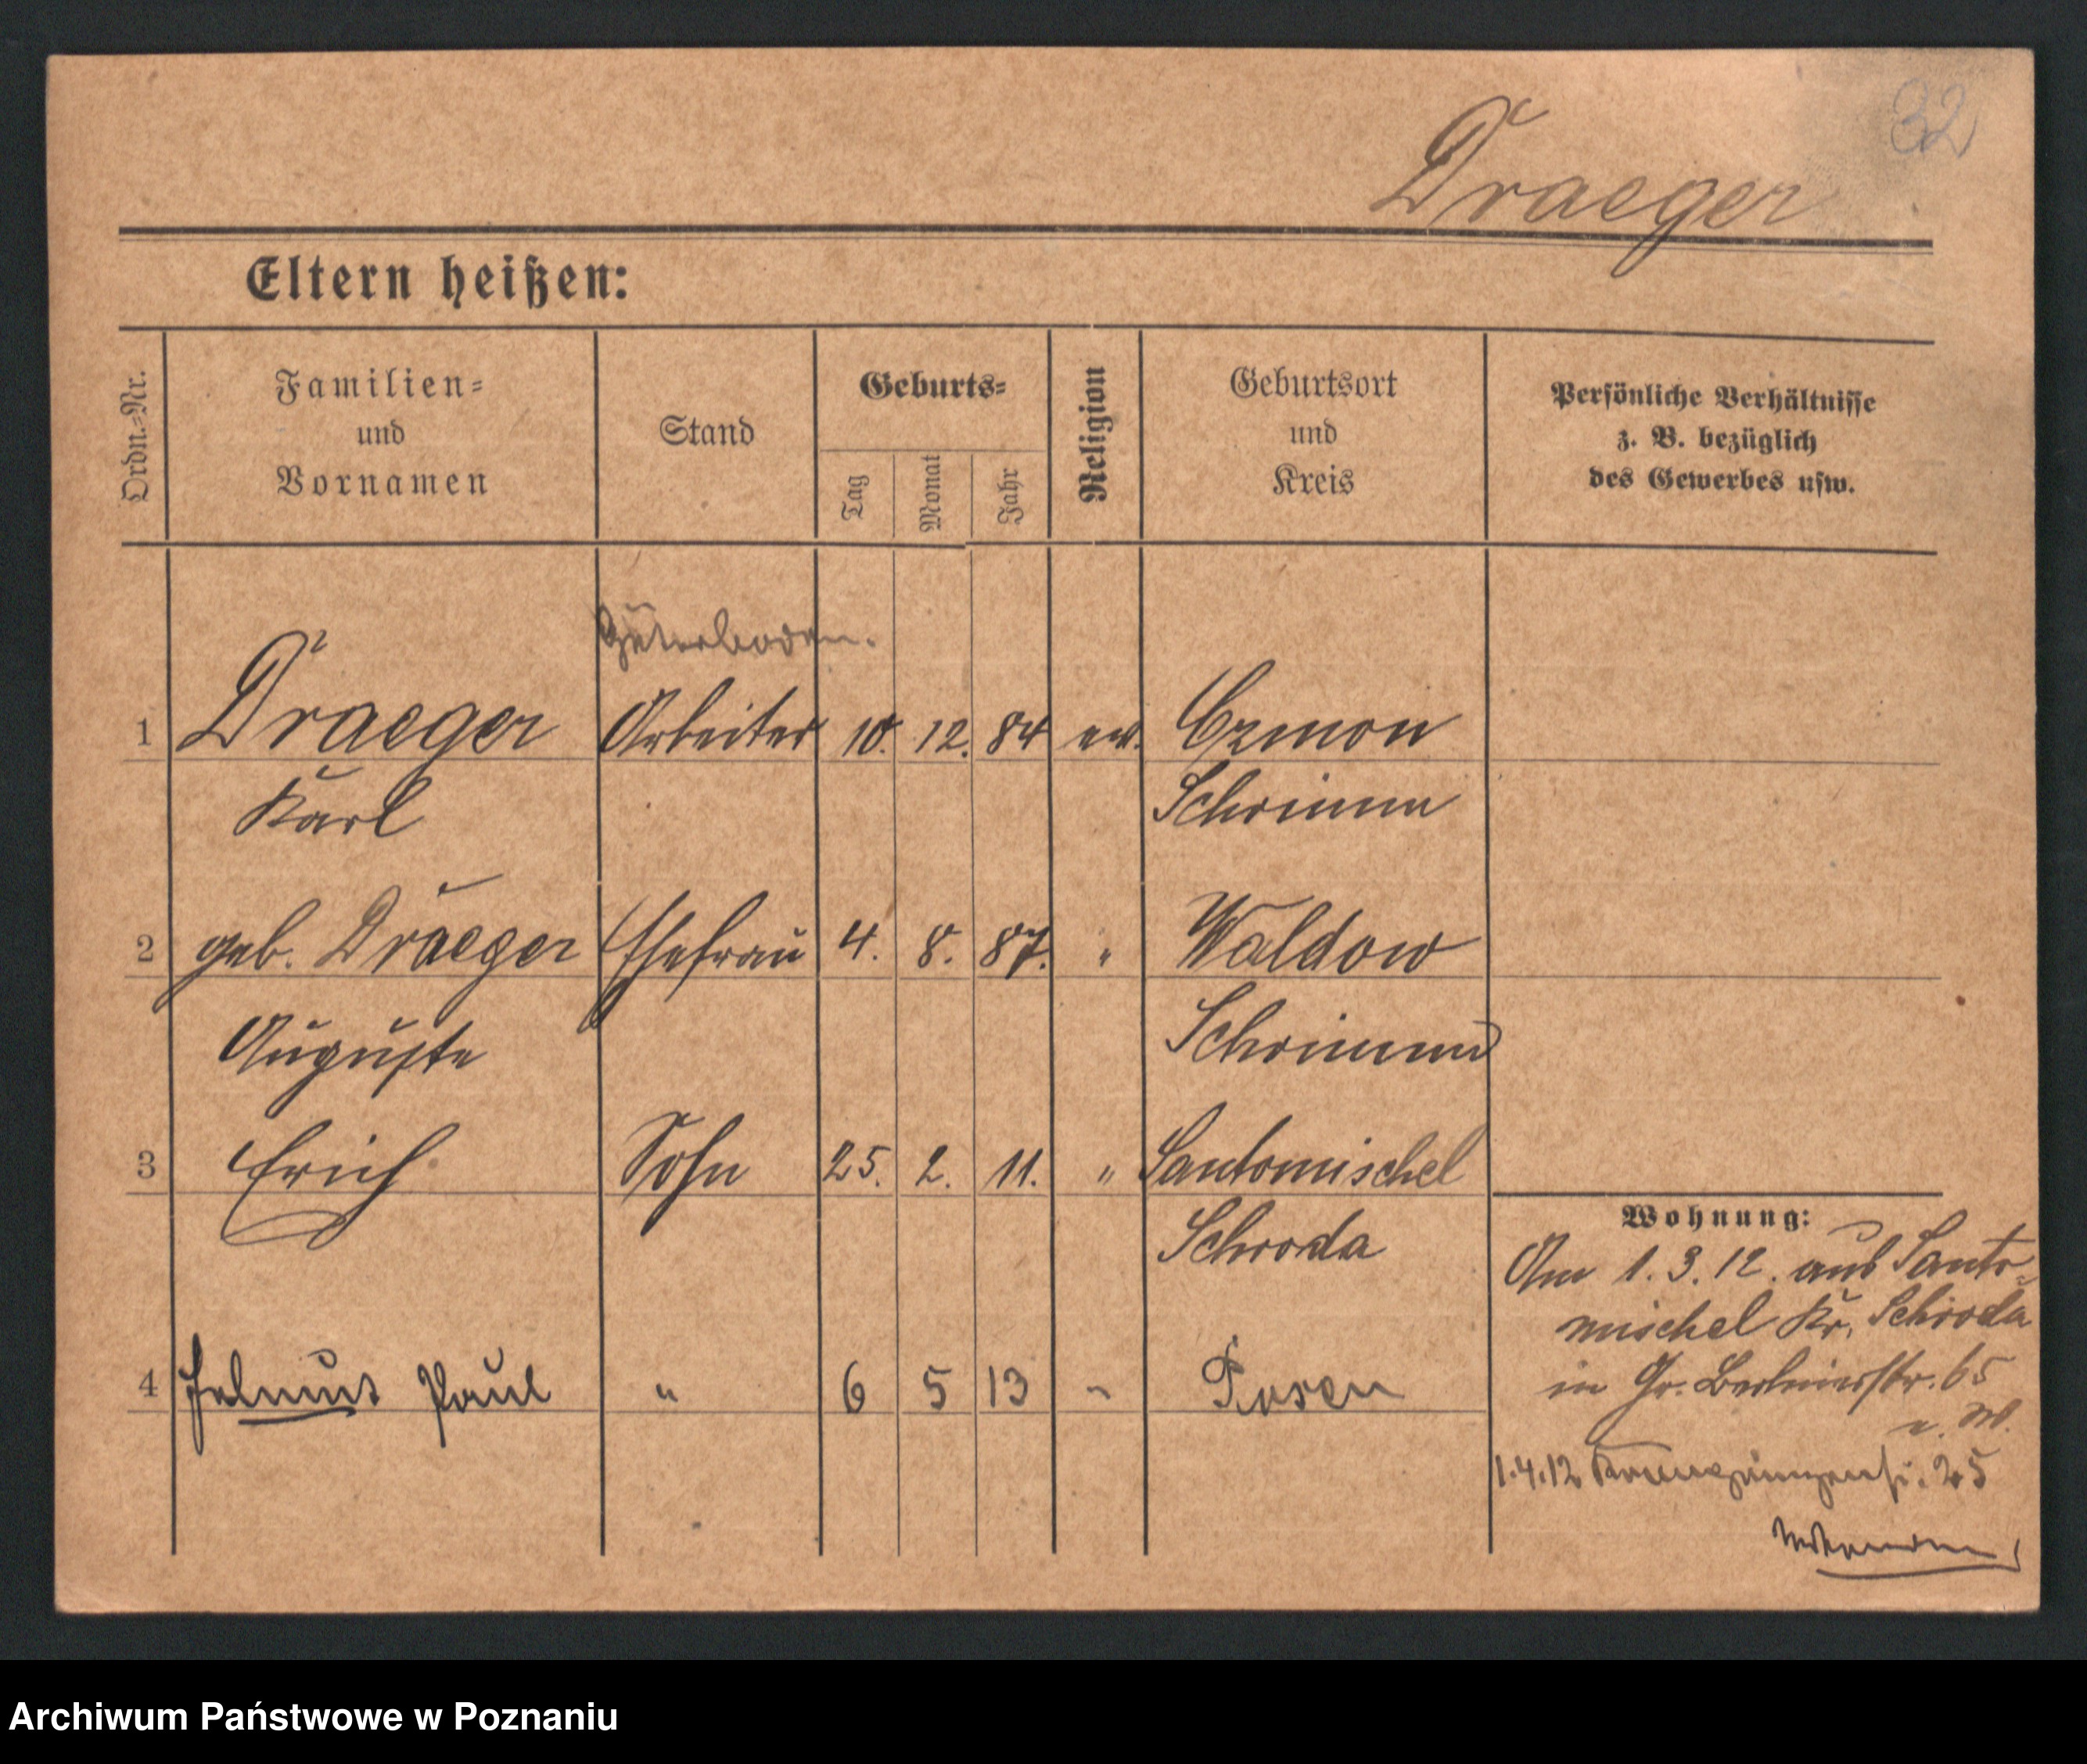 32
Draeger
Eltern heißen:
Ordn.-Nr.
Familien-
und
Vornamen
Stand
Geburts-
Tag
Monat
Jahr
Religion
Geburtsort
und
Kreis
Persönliche Verhältnisse
z. B. bezüglich
des Gewerbes usw.
Güterboden.
1 Draeger Arbeiter 10. 12. 84 ev. Czmon
Karl Schrimm
2 geb. Draeger Ehefrau 4. 8. 87. " Waldow
Auguste Schrimm
3 Erich Sohn 25. 2. 11. " Santomischel
Schroda
4 Helmut Paul " 6 5 13 " Posen
Wohnung:
Am 1.3.12. aus Santo-
mischel Kr. Schroda
in Gr. Berlinerstr. 65
1.4.12 25
Archiwum Państwowe w Poznaniu